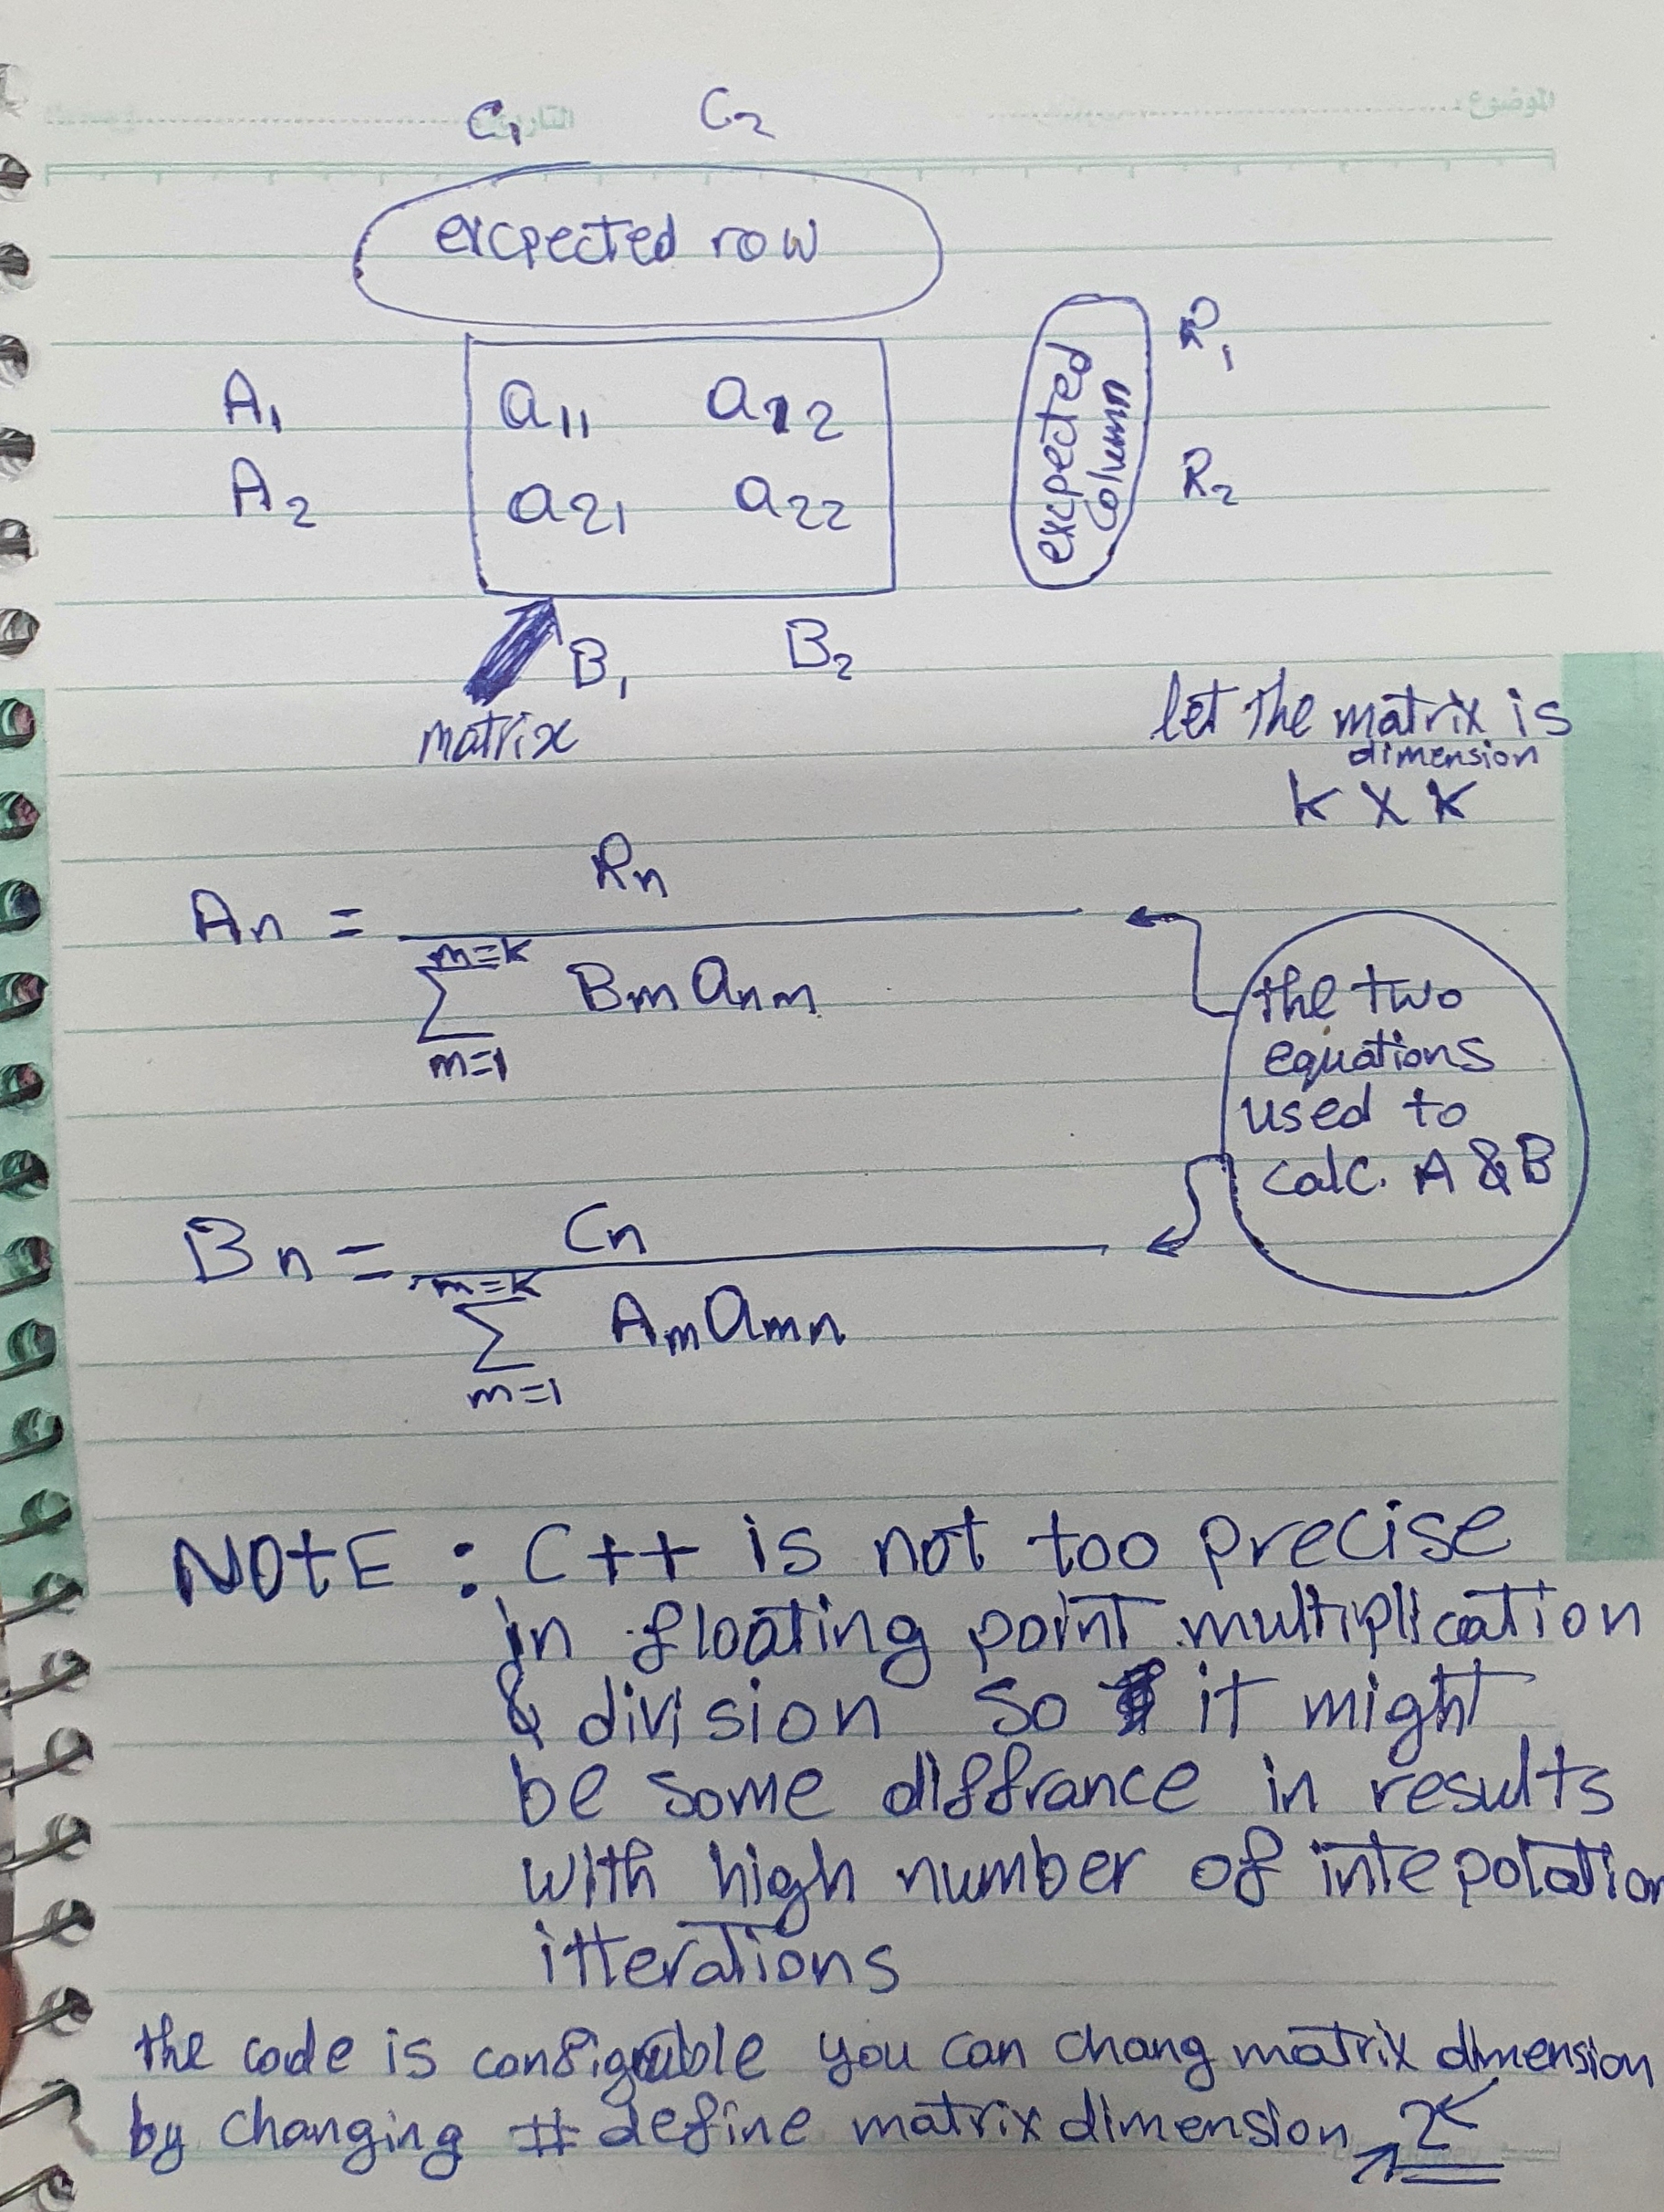 الموضوع :
التاريخ
C₁ C₂
excpected row
A₁ a₁₁ a₁₂ R₁
A₂ a₂₁ a₂₂ R₂
excpected
column
B₁ B₂
matrix
let the matrix is
dimension
k x k
An = Rn / ∑ m=k m=1 Bm anm
the two
equations
used to
calc. A & B
Bn = Cn / ∑ m=k m=1 Am amn
NOtE : C++ is not too precise
in floating point multiplication
& division so it might
be some diffrance in results
with high number of intepolation
itterations
the code is configruble you can chang matrix dimension
by changing # define matrix dimension 2